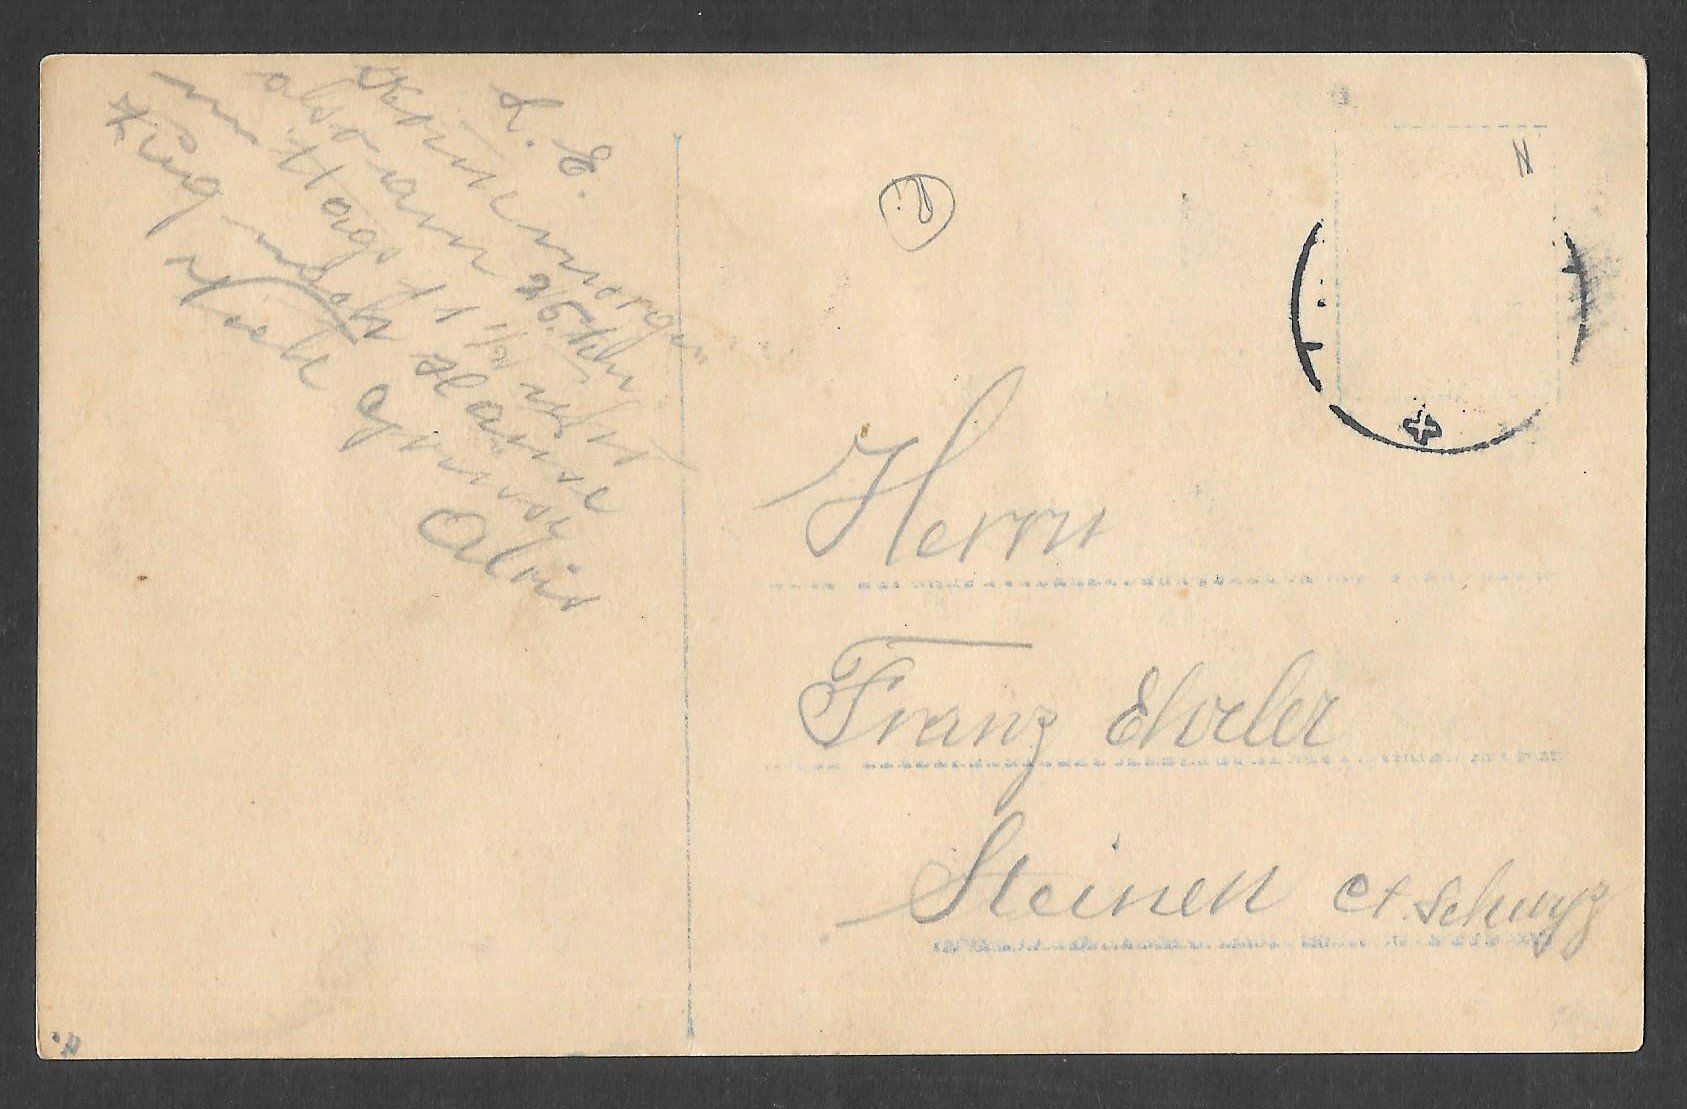 L. E.
Komme morgen
also am 26. ds
mittags 11 1/2 Uhr
Zug nach Hause
Viele Grüsse
Alois
Herrn
Franz Ehrler
Steinen Ct. Schwyz